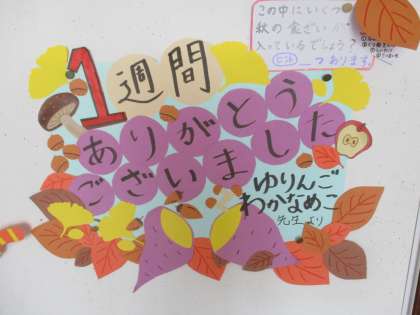 この中にいくつ
秋の食ざいが
入っているでしょう?
ヒント __つあります
1週間
ありがとう
ございました
ゆりんご
わかなめこ
先生より